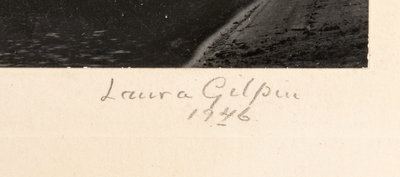 Laura Gilpin
1946